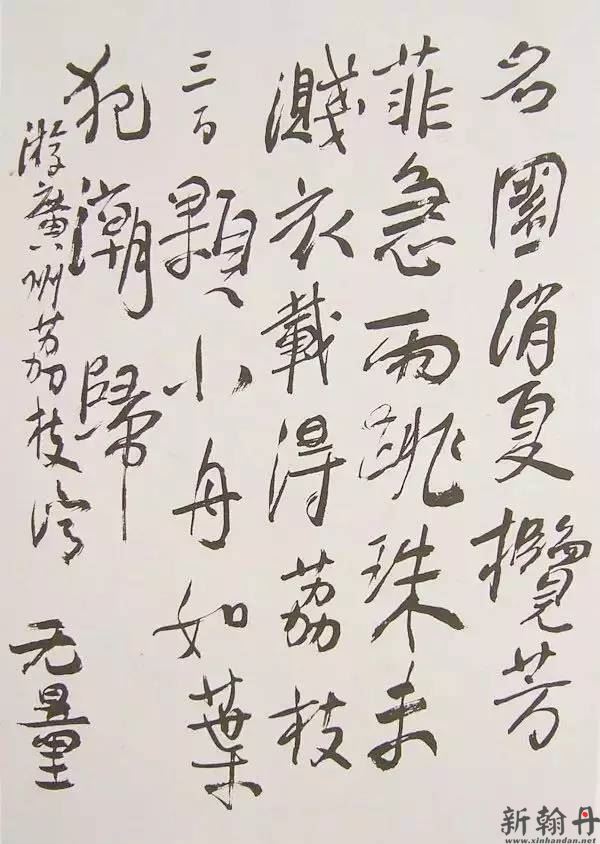 名園消夏攬芳
菲急雨跳珠未
濺衣載得荔枝
三百顆小舟如葉
犯潮歸
游廣州荔枝灣
无量
新翰丹
www.xinhandan.net